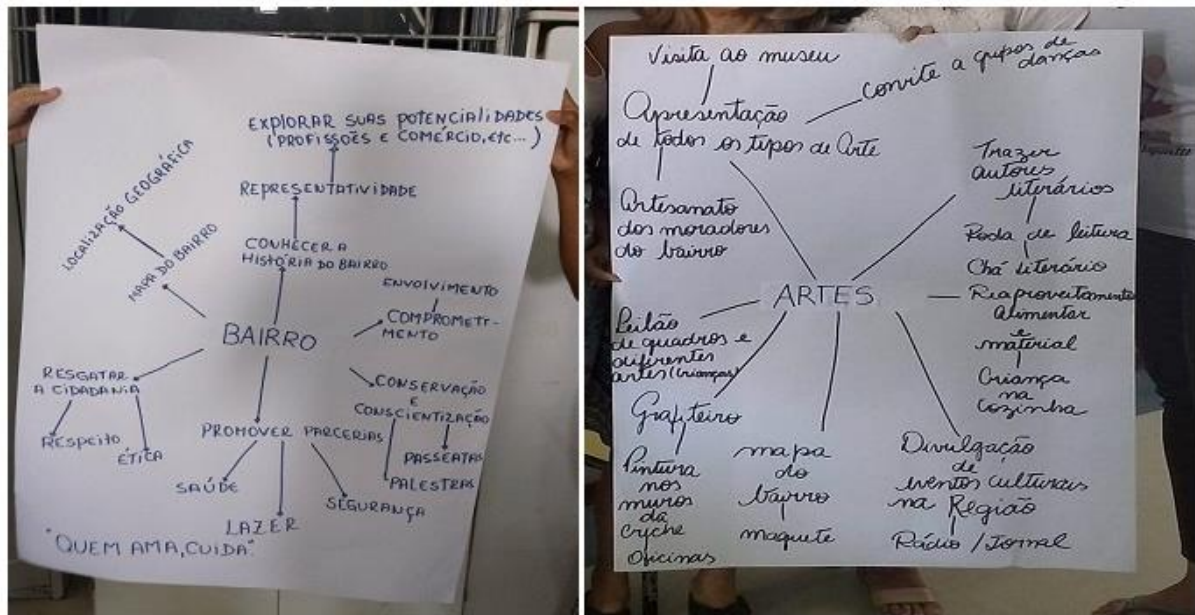 EXPLORAR SUAS POTENCIALIDADES
(PROFISSÕES E COMÉRCIO, Etc...)
REPRESENTATIVIDADE
LOCALIZAÇÃO GEOGRÁFICA
MAPA DO BAIRRO
CONHECER A
HISTÓRIA DO BAIRRO
ENVOLVIMENTO
COMPROMETI-
MENTO
BAIRRO
RESGATAR
A CIDADANIA
RESPEITO
ÉTICA
CONSERVAÇÃO
E
CONSCIENTIZAÇÃO
PASSEATAS
PALESTRAS
PROMOVER PARCERIAS
SAÚDE
LAZER
SEGURANÇA
"QUEM AMA, CUIDA".
Visita ao museu
convite a grupos de
danças
Apresentação
de todos os tipos de Arte
Artesanato
dos moradores
do bairro
Trazer
autores
literários
Roda de leitura
Chá literário
ARTES
Reaproveitamento
alimentar
e
material
Criança
na
Cozinha
Leilão
de quadros e
diferentes
artes (crianças)
Grafiteiro
Pintura
nos
muros
da
creche
Oficinas
mapa
do
bairro
maquete
Divulgação
de
eventos culturais
na Região
Rádio / Jornal